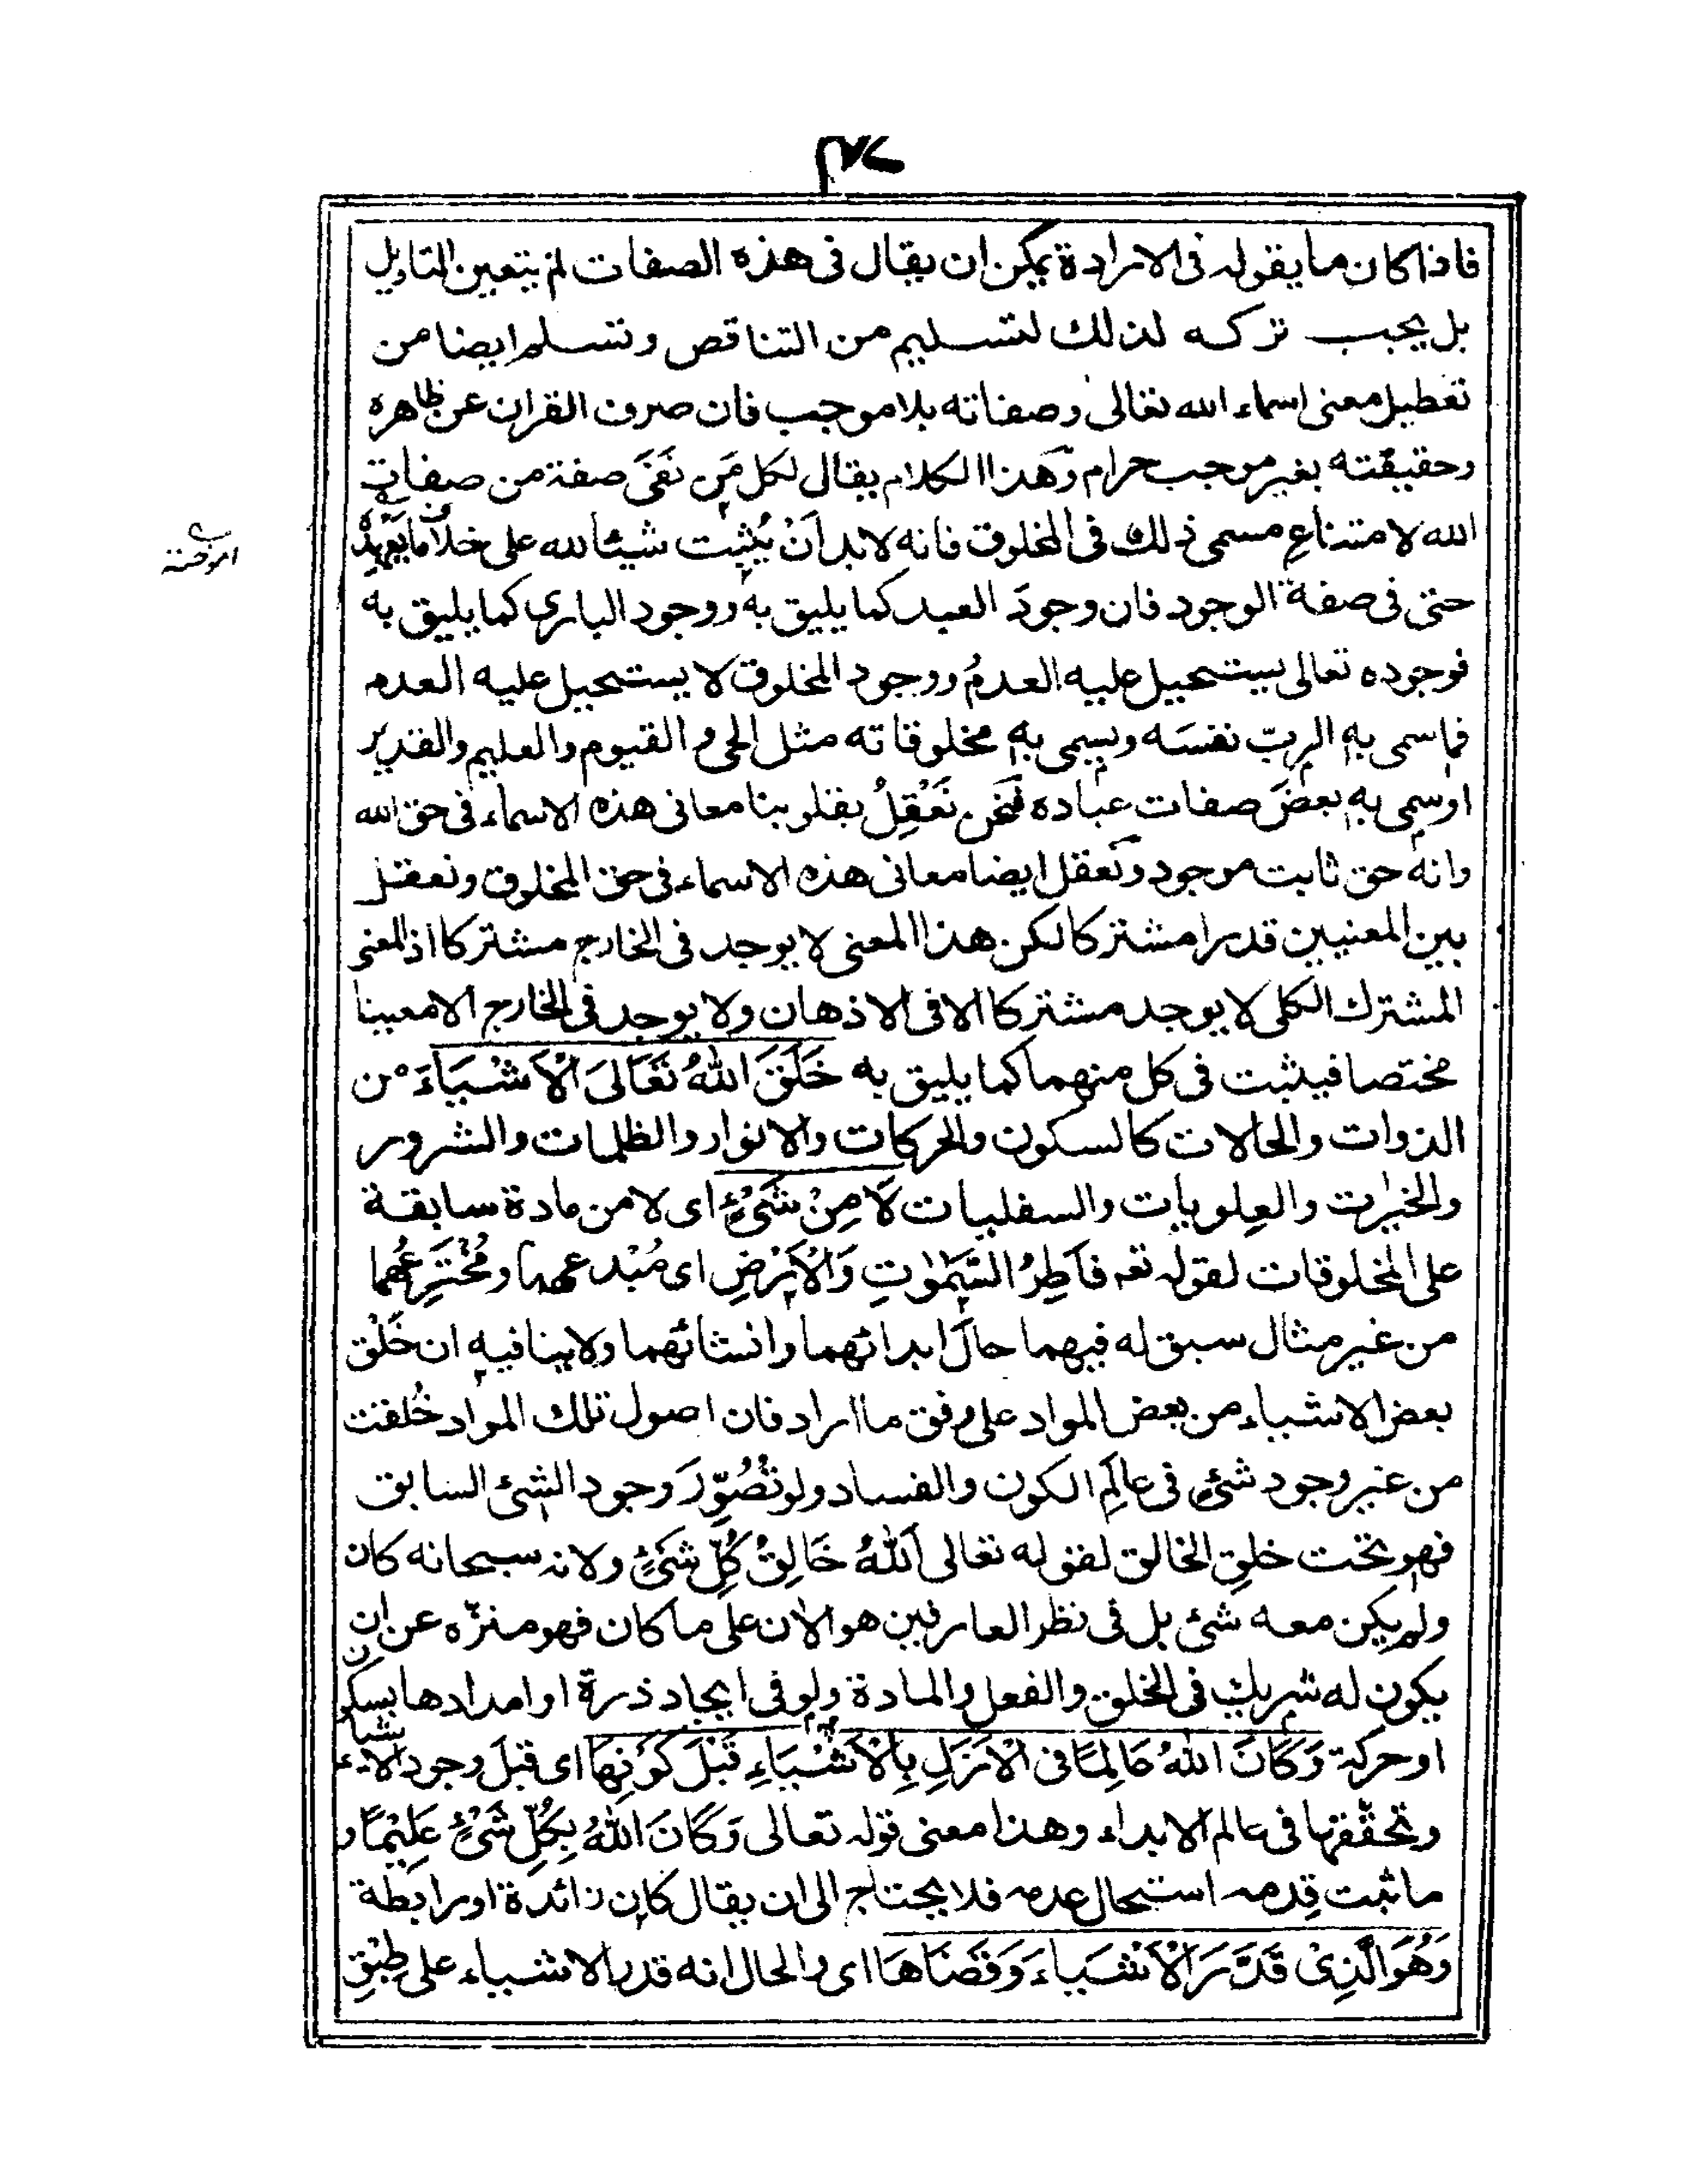 فاذا كان ما يقوله فى الارادة يمكن ان يقال فى هذه الصفات لم يتعين التاويل
بل يجب تركه لذلك لتسليم من التناقض وتسلم ايضا من
تعطيل معنى اسماء الله تعالى وصفاته بلا موجب فان صرف القران عن ظاهره
وحقيقته بغير موجب حرام وهذا الكلام يقال لكل مَن نَفَى صفة من صفات
الله لامتناع مسمى ذلك فى المخلوق فانه لابد اَنْ يُثبِت شيئا لله على خلاف ما يَعهده
حتى فى صفة الوجود فان وجودَ العبد كما يليق به ووجود البارى كما يليق به
فوجوده تعالى يستحيل عليه العدمُ ووجود المخلوق لا يستحيل عليه العدم
فما سمى به الربّ نفسَه ويسمى به مخلوقاته مثل الحى والقيوم والعليم والقدير
اوسمى به بعضَ صفات عباده فنحن نَعْقِلُ بقلوبنا معانى هذه الاسماء فى حق الله
وانه حق ثابت موجود ونعقل ايضا معانى هذه الاسماء فى حق المخلوق ونعقل
بين المعنيين قدرا مشتركا لكن هذا المعنى لا يوجد فى الخارج مشتركا اذ المعنى
المشترك الكلى لا يوجد مشتركا الا فى الاذهان ولا يوجد فى الخارج الا معينا
مختصا فيثبت فى كل منهما كما يليق به خَلَقَ اللهُ تَعَالىَ الْاَشْيَاءَ من
الذوات والحالات كالسكون والحركات والانوار والظلمات والشرور
والخيرات والعِلويات والسفليات لَا مِنْ شَىْءٍ اى لا من مادة سابقة
على المخلوقات لقوله تعه فَاطِرُ السَّمٰوٰتِ وَالْاَرْضِ اى مُبْدعهما ومُخْتَرِعُهما
من غير مثال سبق له فيهما حالَ ابدائهما وانشائهما ولا ينافيه ان خَلْق
بعض الاشياء من بعض المواد على وفق ما اراد فان اصول تلك المواد خُلقت
من غير وجود شئ فى عالَمِ الكون والفساد ولو تُصُوِّرَ وجود الشئ السابق
فهو تحت خلق الخالق لقوله تعالى اَللهُ خَالِقُ كُلِّ شَىْءٍ ولانه سبحانه كان
ولم يكن معه شئ بل فى نظر العارفين هو الان على ما كان فهو منزّه عن ان
يكون له شريك فى الخلق والفعل والمادة ولو فى ايجاد ذرة او امدادها بسكون
او حركة وَكَانَ اللهُ عَالِمًا فى الْاَزَلِ بِالْاَشْيَاءِ قَبْلَ كَوْنِهَا اى قبلَ وجود الاشياء
وتحقّقها فى عالم الابداء وهذا معنى قوله تعالى وَكَانَ اللهُ بِكُلِّ شَىْءٍ عَلِيْمًا و
ما ثبت قِدمه استحال عدمه فلا يحتاج الى ان يقال كان زائدة او رابطة
وَهُوَ الَّذِىْ قَدَّرَ الْاَشْيَاءَ وَقَضَاهَا اى والحال انه قدر الاشياء على طبْقِ